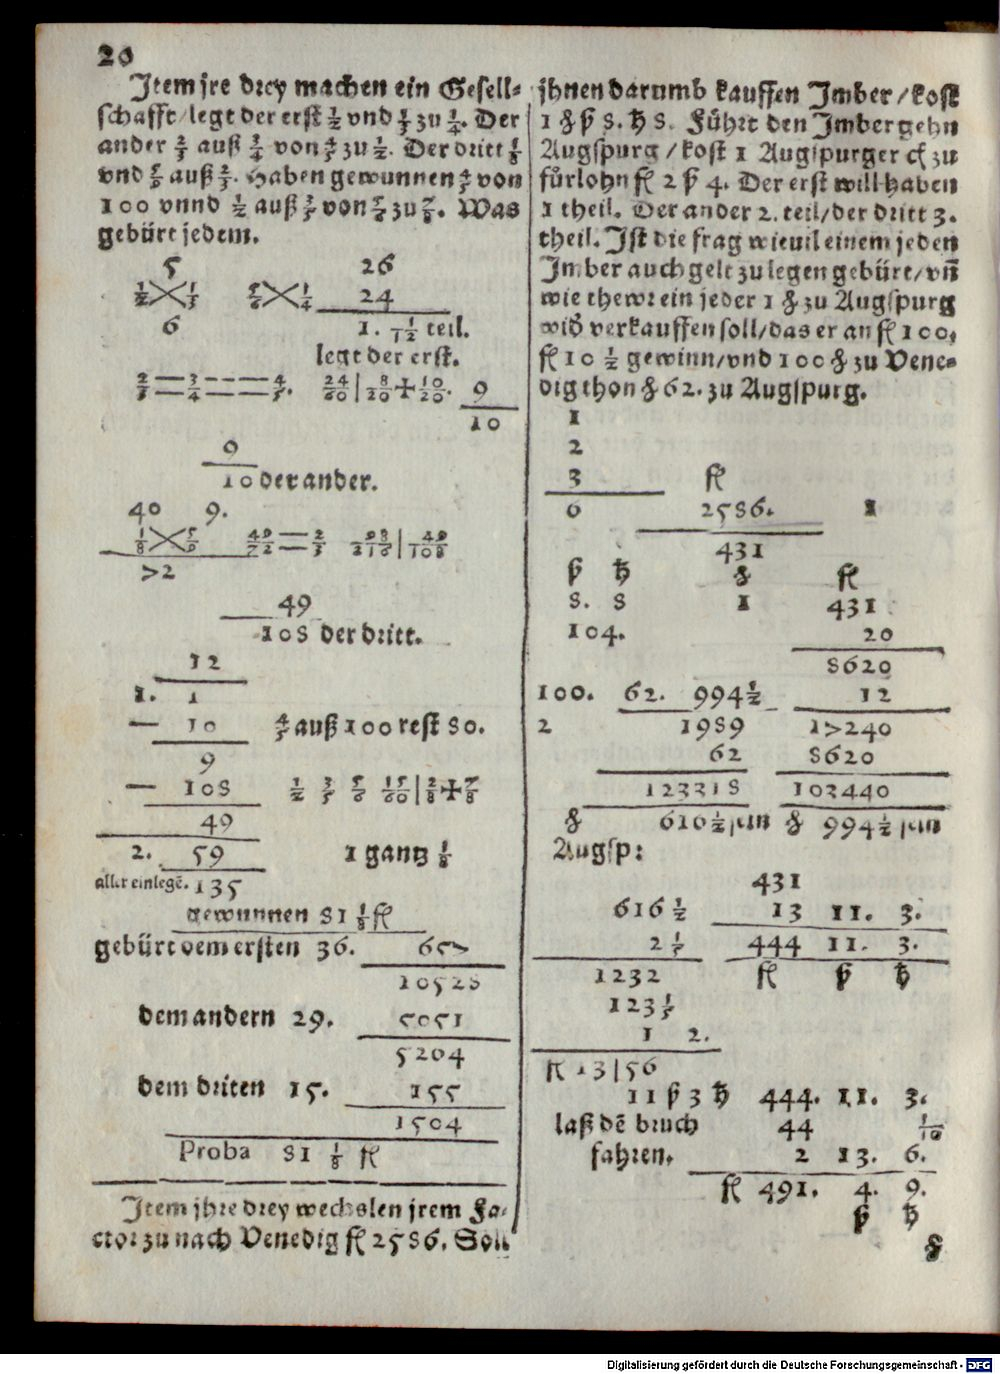 20
Item jre drey machen ein Gesell⸗
schafft/legt der erst ½ vnd ⅓ zu ¼. Der
ander ⅔ auß ¾ von ⅘ zu ½. Der dritt ⅛
vnd 5/9 auß ⅔. Haben gewunnen ⅘ von
100 vnnd ½ auß ⅗ von ⅚ zu ⅞. Was
gebürt jedem.
5 26
½ ⅓ ⅚ ¼ 24
6 1. 1/12 teil.
legt der erst.
⅔ ¾ ⅘. 24/60 | 8/20 + 10/20. 9
10
9
10 der ander.
40 9.
⅛ 5/9 49/72 ⅔ 98/216 | 49/108
72
49
108 der dritt.
12
1. 1
— 10 ⅘ auß 100 rest 80.
9
— 108 ½ ⅗ ⅚ 15/60 | 2/8 + 7/8
49
2. 59 1 gantz ⅛
aller einlegē. 135
gewunnen 81 ⅛ fl
gebürt dem ersten 36. 657
10528
dem andern 29. 5051
5264
dem driten 15. 155
1504
Proba 81 ⅛ fl
Item jhre drey wechslen jrem Fa⸗
ctor zu nach Venedig fl 2586. Soll
jhnen darumb kauffen Imber/kost
1 ℔ ß 8. ₰ 8. Führt den Imber gehn
Augspurg/kost 1 Augspurger ct zu
fůrlohn fl 2 ß 4. Der erst will haben
1 theil. Der ander 2. teil/der dritt 3.
theil. Ist die frag wieuil einem jeden
Imber auch gelt zu legen gebürt/vñ
wie thewr ein jeder 1 ℔ zu Augspurg
wid verkauffen soll/das er an fl 100.
fl 10 ½ gewinn/vnd 100 ℔ zu Vene⸗
dig thon ℔ 62. zu Augspurg.
1
2
3 fl
6 2586. 1
431
ß ₰ ℔ fl
8. 8 1 431
104. 20
8620
100. 62. 994½ 12
2 1989 17240
62 8620
123318 103440
℔ 616½ sein ℔ 994½ sein
Augsp:
431
616 ½ 13 11. 3.
2 ⅕ 444 11. 3.
1232 fl ß ₰
123 ⅕
1 2.
fl 13|56
11 ß 3 ₰ 444. 11. 3.
laß dē bruch 44 1/10
fahren. 2 13. 6.
fl 491. 4. 9.
ß ₰
℔
Digitalisierung gefördert durch die Deutsche Forschungsgemeinschaft - DFG